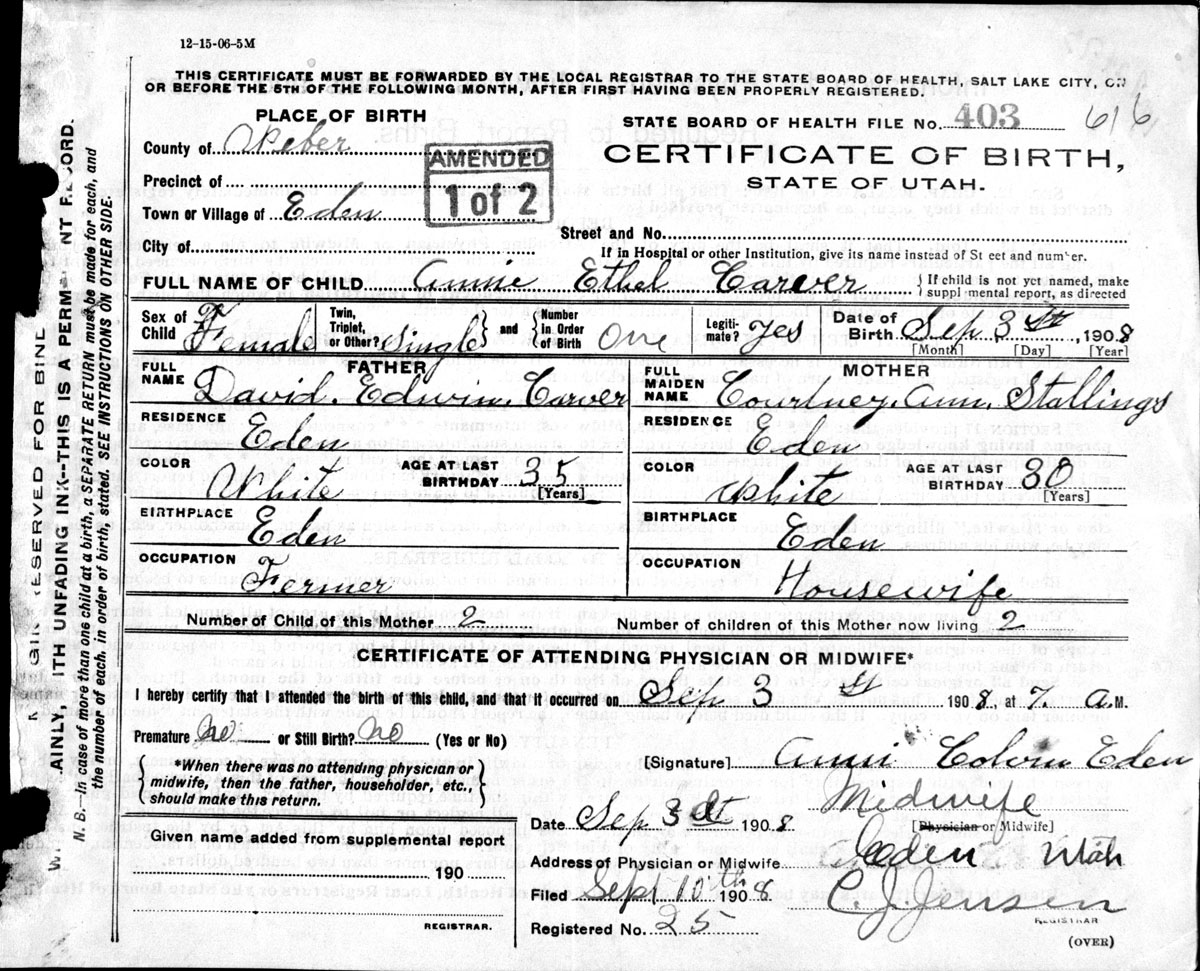 12-15-06-5M
THIS CERTIFICATE MUST BE FORWARDED BY THE LOCAL REGISTRAR TO THE STATE BOARD OF HEALTH, SALT LAKE CITY, ON
OR BEFORE THE 5TH OF THE FOLLOWING MONTH, AFTER FIRST HAVING BEEN PROPERLY REGISTERED.
PLACE OF BIRTH
STATE BOARD OF HEALTH FILE No. 403 616
County of Weber
AMENDED
1 of 2
CERTIFICATE OF BIRTH,
STATE OF UTAH.
Precinct of
Town or Village of Eden
Street and No.
City of
If in Hospital or other Institution, give its name instead of St eet and number.
FULL NAME OF CHILD Annie Ethel Carver { If child is not yet named, make
supplemental report, as directed
Sex of Child Female Twin, Triplet, or Other? Single } and { Number in Order of Birth One Legitimate? Yes Date of Birth Sep 3 st, 1908
[Month] [Day] [Year]
FATHER
FULL NAME David. Edwin. Carver
RESIDENCE Eden
COLOR White AGE AT LAST BIRTHDAY 35
[Years]
BIRTHPLACE Eden
OCCUPATION Fermer
MOTHER
FULL MAIDEN NAME Courtney. Ann. Stallings
RESIDENCE Eden
COLOR White AGE AT LAST BIRTHDAY 30
[Years]
BIRTHPLACE Eden
OCCUPATION Housewife
Number of Child of this Mother 2 Number of children of this Mother now living 2
CERTIFICATE OF ATTENDING PHYSICIAN OR MIDWIFE*
I hereby certify that I attended the birth of this child, and that it occurred on Sep 3 st 1908, at 7. a M.
Premature? no or Still Birth? no (Yes or No)
*When there was no attending physician or
midwife, then the father, householder, etc.,
should make this return.
[Signature] Eden
Midwife
[Physician or Midwife]
Date Sep 3 st 1908
Address of Physician or Midwife Eden Utah
Filed Sept 10th 1908 C. J. Jensen
REGISTRAR
Registered No. 25
(OVER)
Given name added from supplemental report
190
REGISTRAR.
N. B.—In case of more than one child at a birth, a SEPARATE RETURN must be made for each, and
the number of each, in order of birth, stated. SEE INSTRUCTIONS ON OTHER SIDE.
AINLY, ITH UNFADING INK--THIS IS A PERM NT RECORD.
RESERVED FOR BIND